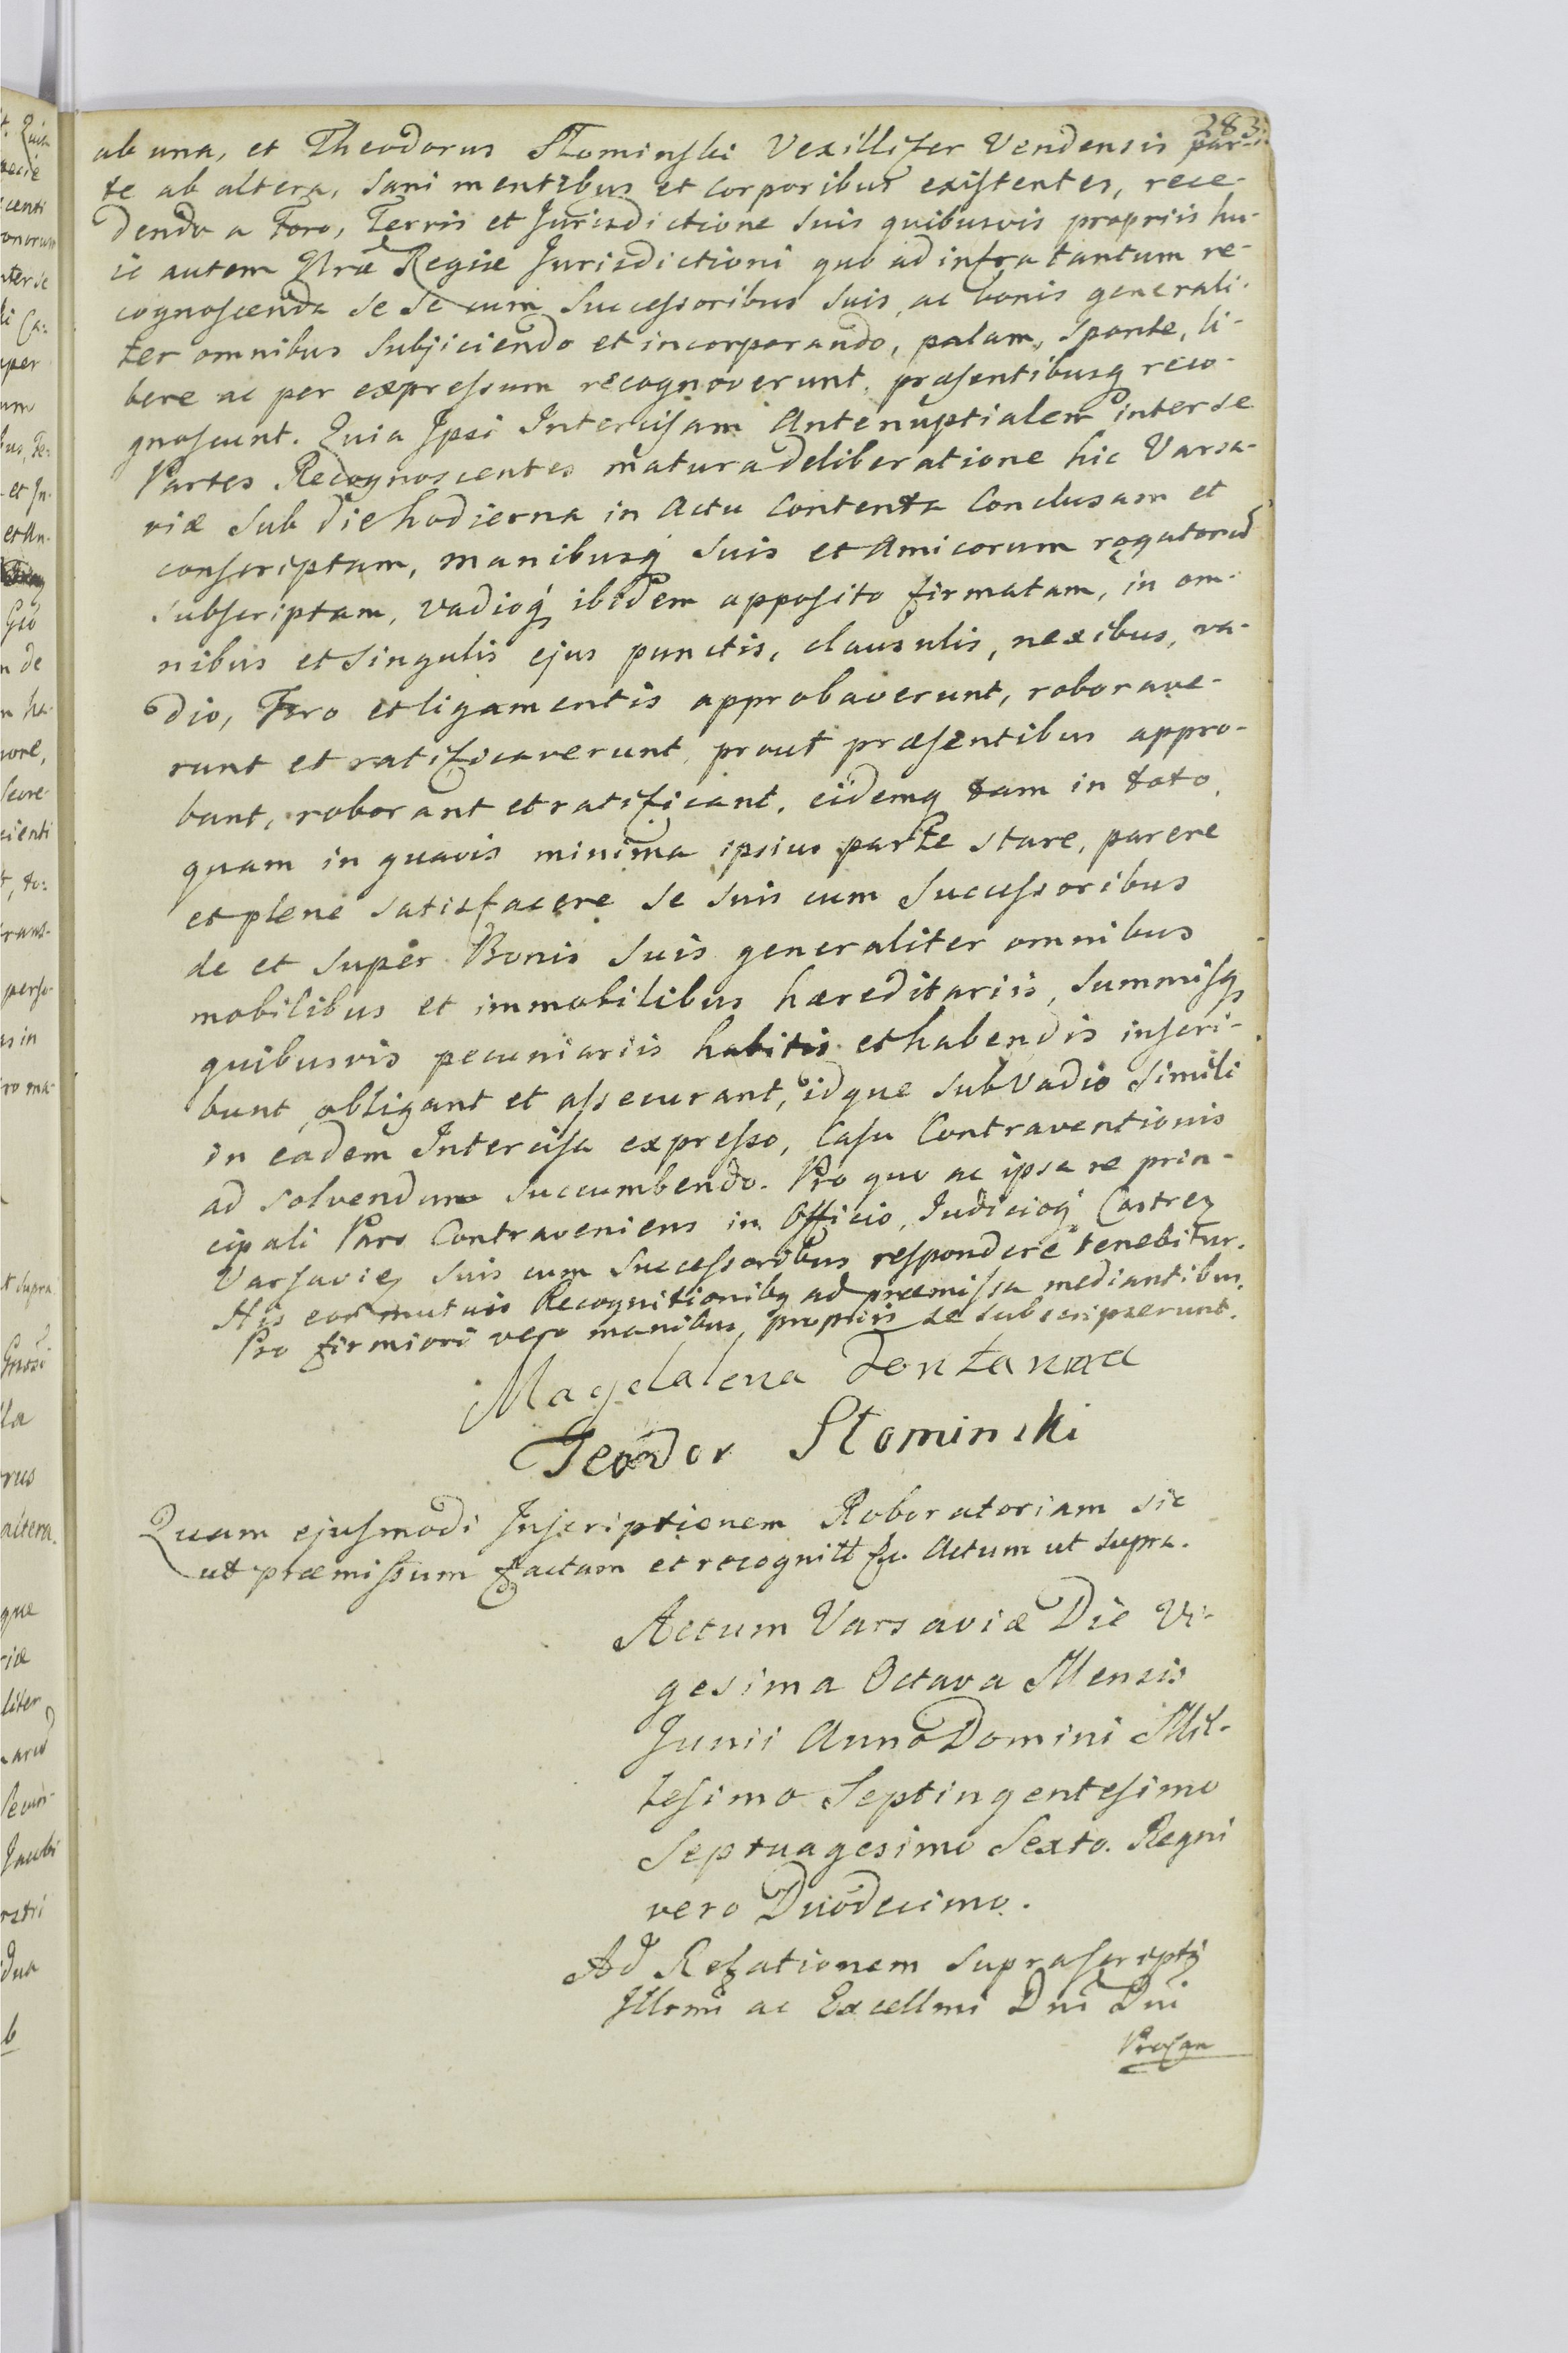 283.
ab una, et Theodorus Słominski Vexillifer Vendensis par-
te ab altera, sani mentibus et corporibus existentes, rece-
dendo a Foro, Terris et Jurisdictione suis quibusvis propriis hu-
ic autem Nræ Regiæ Jurisdictioni quo ad infra tantum re-
cognoscenda se se cum successoribus suis, ac bonis generali-
ter omnibus subjiciendo et incorporando, palam, sponte, li-
bere ac per expressum recognoverunt, præsentibusq reco-
gnoscunt. Quia Ipsi Intercisam Antenuptialem inter se
Partes Recognoscentes matura deliberatione hic Varsa-
viæ sub die hodierna in Actu Contenta Conclusam et
conscriptam, manibusq suis et Amicorum rogatorū
subscriptam, vadioq ibidem apposito firmatam, in om-
nibus et singulis ejus punctis, clausulis, nexibus, va-
dio, Foro et ligamentis approbaverunt, roborave-
runt et ratificaverunt, prout præsentibus appro-
bant, roborant et ratificant, eidemq tam in toto,
quam in quavis minima ipsius parte stare, parere
et plene satisfacere se suis cum successoribus
de et super Bonis suis generaliter omnibus
mobilibus et immobilibus hæreditariis, summisq
quibusvis pecuniariis habitis et habendis inscri-
bunt, obligant et assecurant, idque sub vadio simili
in eadem Intercisa expresso, casu Contraventionis
ad solvendum succumbendo. Pro quo ac ipsa re prin-
cipali Pars Contraveniens in Officio, Judicioq Castren
Varsavien suis cum successoribus respondere tenebitur.
His eor mutuis Recognitionibq ad præmissa mediantibus.
Pro firmiori vero manibus propriis se subscripserunt.
Magdalena Fontanowa
Teodor Słominski
Quam ejusmodi Inscriptionem Roboratoriam sic
ut præmissum factam et recognitt &c. Actum ut supra.
Actum Varsaviæ Die Vi-
gesima Octava Mensis
Junii Anno Domini Mil-
lesimo Septingentesimo
Septuagesimo Sexto. Regni
vero Duodecimo.
Ad Relationem suprascripti
Illrmi ac Excellmi Dni Dni